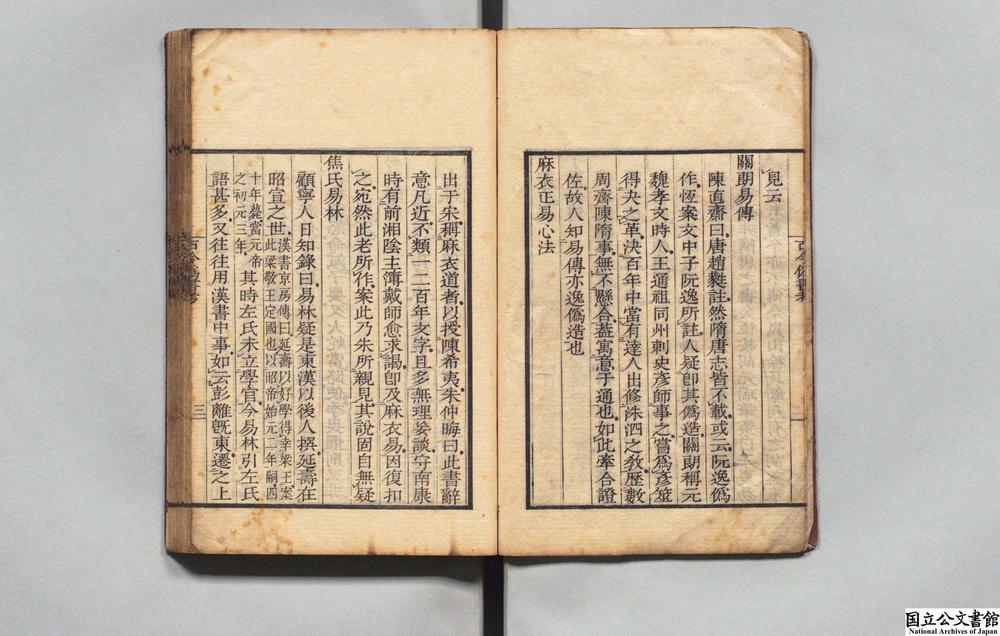 見云
關朗易傳
陳直齋曰唐趙蕤註然隋唐志皆不載或云阮逸僞
作恆案文中子阮逸所註人疑卽其僞造關朗稱元
魏孝文時人王通祖同州刺史彥師事之嘗爲彥筮
得夬之革決百年中當有達人出修洙泗之敎歷數
周齊陳隋事無不懸合葢寓意于通也如此牽合證
佐故人知易傳亦逸僞造也
麻衣正易心法
出于宋稱麻衣道者以授陳希夷朱仲晦曰此書辭
意凡近不類一二百年文字且多無理妄談守南康
時有前湘陰主簿戴師愈求謁卽及麻衣易因復扣
之宛然此老所作案此乃朱所親見其說固自無疑
焦氏易林
顧寧人日知錄曰易林疑是東漢以後人撰延壽在
昭宣之世漢書京房傳曰延壽以好學得幸梁王案
此梁敬王定國也以昭帝始元二年嗣四
十年薨當元帝
之初元三年其時左氏未立學官今易林引左氏
語甚多又往往用漢書中事如云彭離旣東遷之上
古今僞書考
三
国立公文書館
National Archives of Japan